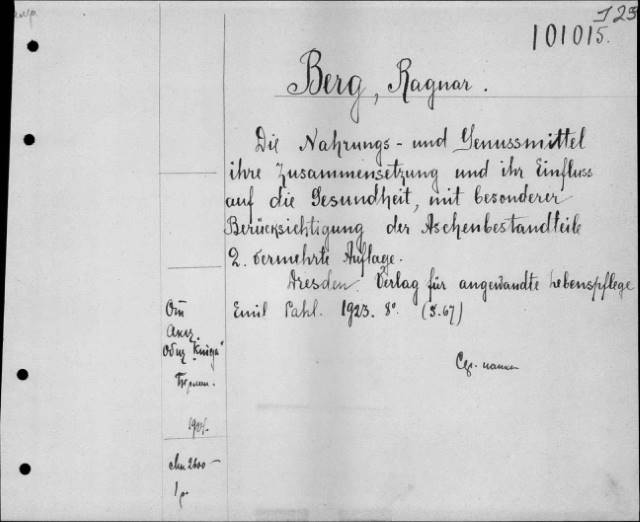 J 23
101015.
Berg, Ragnar.
Die Nahrungs- und Genussmittel
ihre Zusammensetzung und ihr Einfluss
auf die Gesundheit, mit besonderer
Berücksichtigung der Aschenbestandteile
2. vermehrte Auflage.
Dresden. Verlag für angewandte Lebenspflege
Emil Pahl. 1923. 8° (S. 67)
От
Акц.
Общ. "Книга"
Берлин.